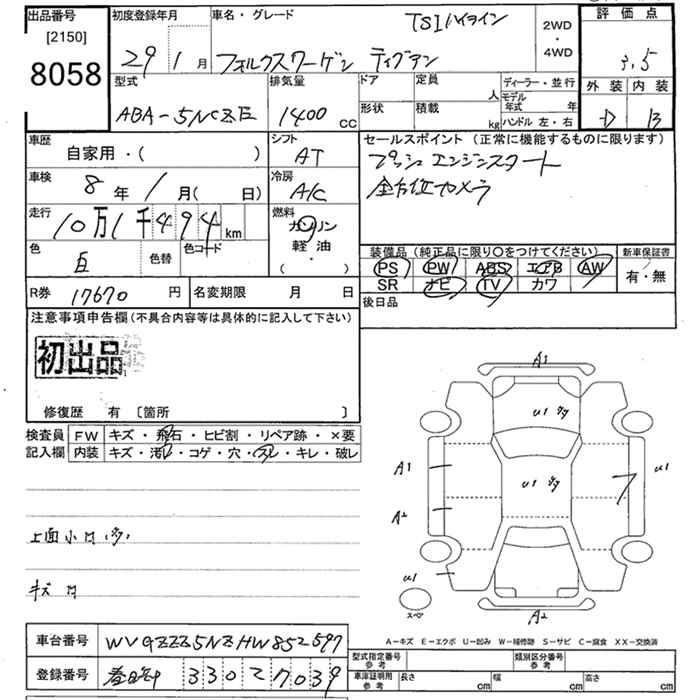 出品番号
[2150]
8058
初度登録年月
29 1 月
車名・グレード
TSIハイライン
フォルクスワーゲン ティグアン
2WD
・
4WD
評価点
3.5
外装 内装
D B
型式
ABA-5NCZE
排気量
1400 CC
ドア
形状
定員 人
積載 kg
ディーラー・並行
モデル年式 年
ハンドル 左・右
車歴
自家用・( )
シフト
AT
セールスポイント(正常に機能するものに限ります)
プッシュエンジンスタート
全方位カメラ
車検
8 年 1 月( 日)
冷房
A/C
走行
10 万 1 千 4 9 4 km
燃料
ガソリン
軽・油
( ・ )
色
白
色替
色コード
装備品(純正品に限り○をつけてください)
新車保証書
PS PW ABS エアB AW
有・無
SR ナビ TV カワ
R券 17670 円
名変期限 月 日
後日品
注意事項申告欄(不具合内容等は具体的に記入して下さい)
初出品
修復歴 有 〔箇所 〕
検査員
記入欄
FW キズ・飛石・ヒビ割・リペア跡・×要
内装 キズ・汚れ・コゲ・穴・スレ・キレ・破レ
上面小凹(多)
キズ 凹
A1
U1 多
A1
U1 多
U1
A2
U1
スペア
A2
A-キズ E-エクボ U-凹み W-補修跡 S-サビ C-腐食 XX-交換済
車台番号 WVGZZZ5NZHW852597
登録番号 春日井 330 2 7039
型式指定番号
参考
類別区分番号
参考
車庫証明用
参考
長さ cm 幅 cm 高さ cm